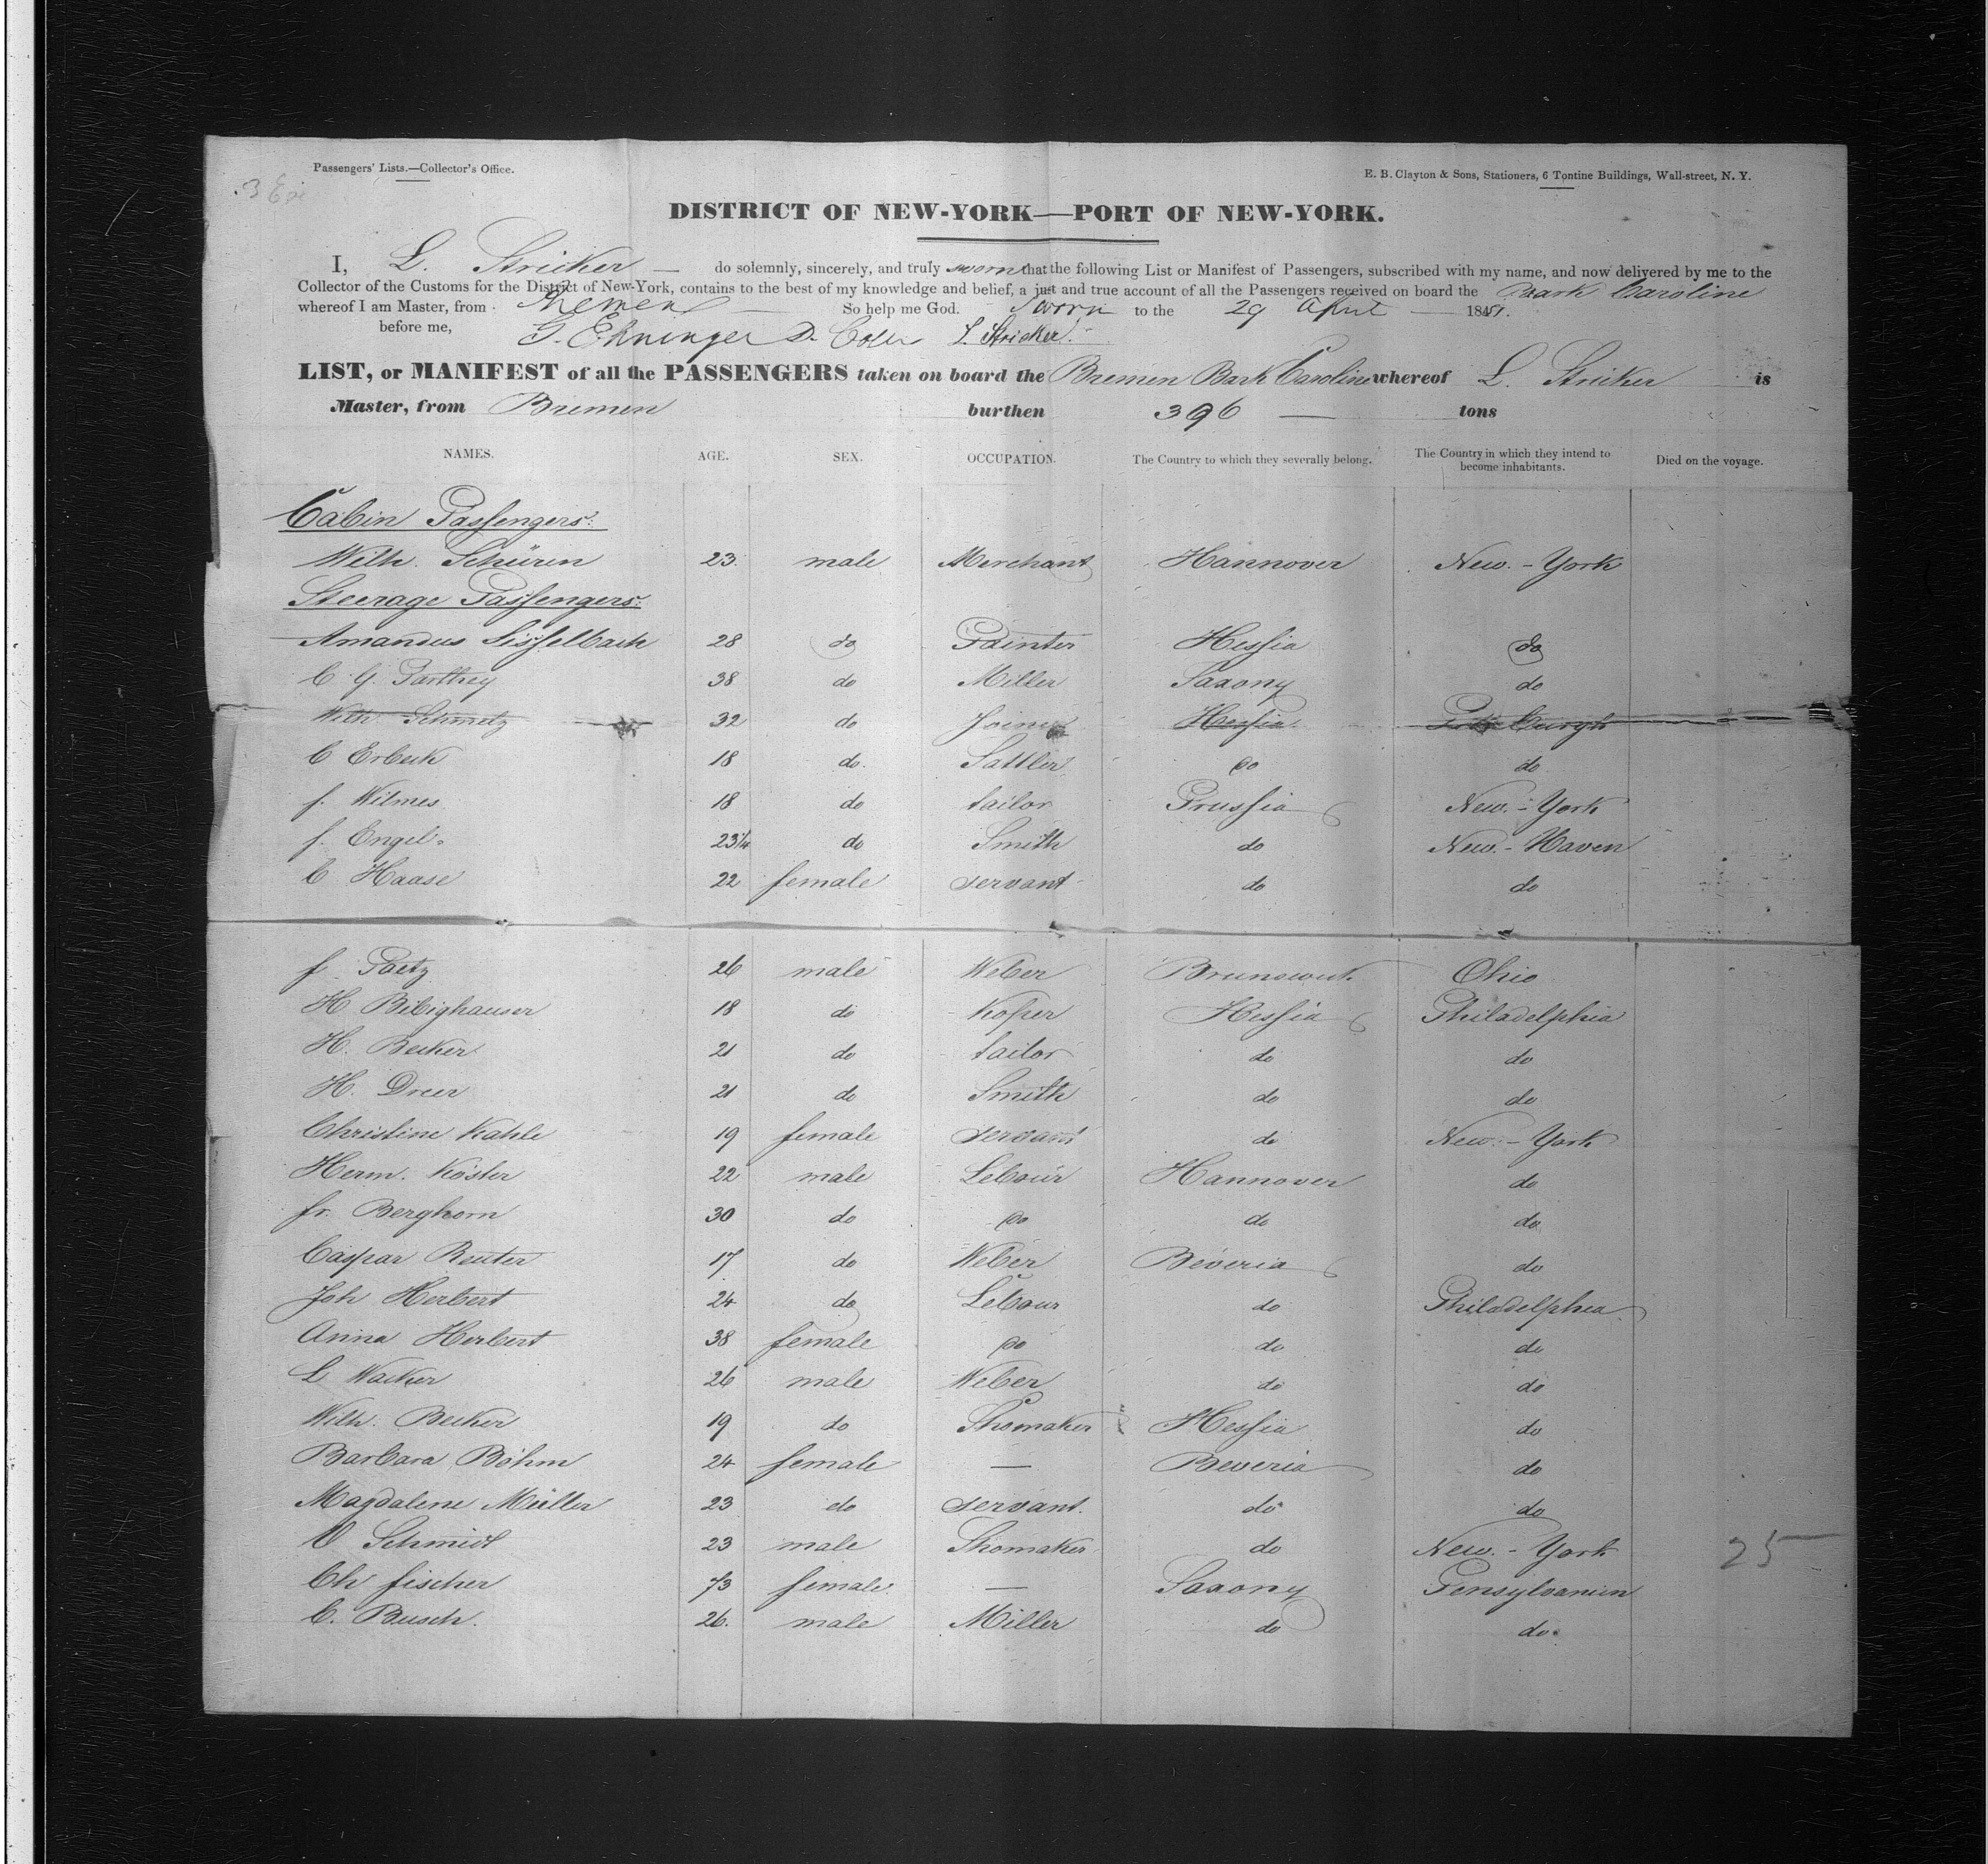 Passengers' Lists.—Collector's Office. E. B. Clayton & Sons, Stationers, 6 Tontine Buildings, Wall-street, N. Y.
DISTRICT OF NEW-YORK—PORT OF NEW-YORK.
I, L. Stricker — do solemnly, sincerely, and truly sworn that the following List or Manifest of Passengers, subscribed with my name, and now delivered by me to the
Collector of the Customs for the District of New-York, contains to the best of my knowledge and belief, a just and true account of all the Passengers received on board the Bark Caroline
whereof I am Master, from Bremen — So help me God. Sworn to the 29 April — 184
before me, G. Ehninger D. Coll L. Stricker.
LIST, or MANIFEST of all the PASSENGERS taken on board the Bremen Bark Caroline whereof L. Stricker is
Master, from Bremen burthen 396 — tons
NAMES. AGE. SEX. OCCUPATION. The Country to which they severally belong. The Country in which they intend to become inhabitants. Died on the voyage.
Cabin Passengers:
Wilh. Schüren 23 male Merchant Hannover New-York
Steerage Passengers:
Amandus 28 do Painter Hessia do
C G. Parthey 38 do Miller Saxony do
Wilh Schmelz 32 do Joiner Hessia Pittsburgh
C Erbeck 18 do. Sattler do do
f. Wilmes 18 do tailor Prussia New-York
f. Engel. 23 1/4 do Smith do New-Haven
C Haase 22 female servant do do
f Paetz 26 male Weber Brunswick Ohio
H Bibighauser 18 do Koper Hessia Philadelphia
H. Becker 21 do tailor do do
H. Dreer 21 do Smith do do
Christine Kahle 19 female servant do New-York
Herm. Köster 22 male Lebour Hannover do
fr. Berghorn 30 do do do do
Caspar Reuter 17 do Weber Beveria do
Joh Herbert 24 do Lebour do Philadelphia
Anna Herbert 38 female do do do
L Wacker 26 male Weber do do
Wilh. Becker 19 do Shomaker Hessia do
Barbara Böhm 24 female — Beveria do
Magdalene Müller 23 do servant. do do
Schmidt 23 male Shomaker do New-York 25
Ch fischer 73 female — Saxony Pensylvanien
C. Busch. 26. male Miller do do.